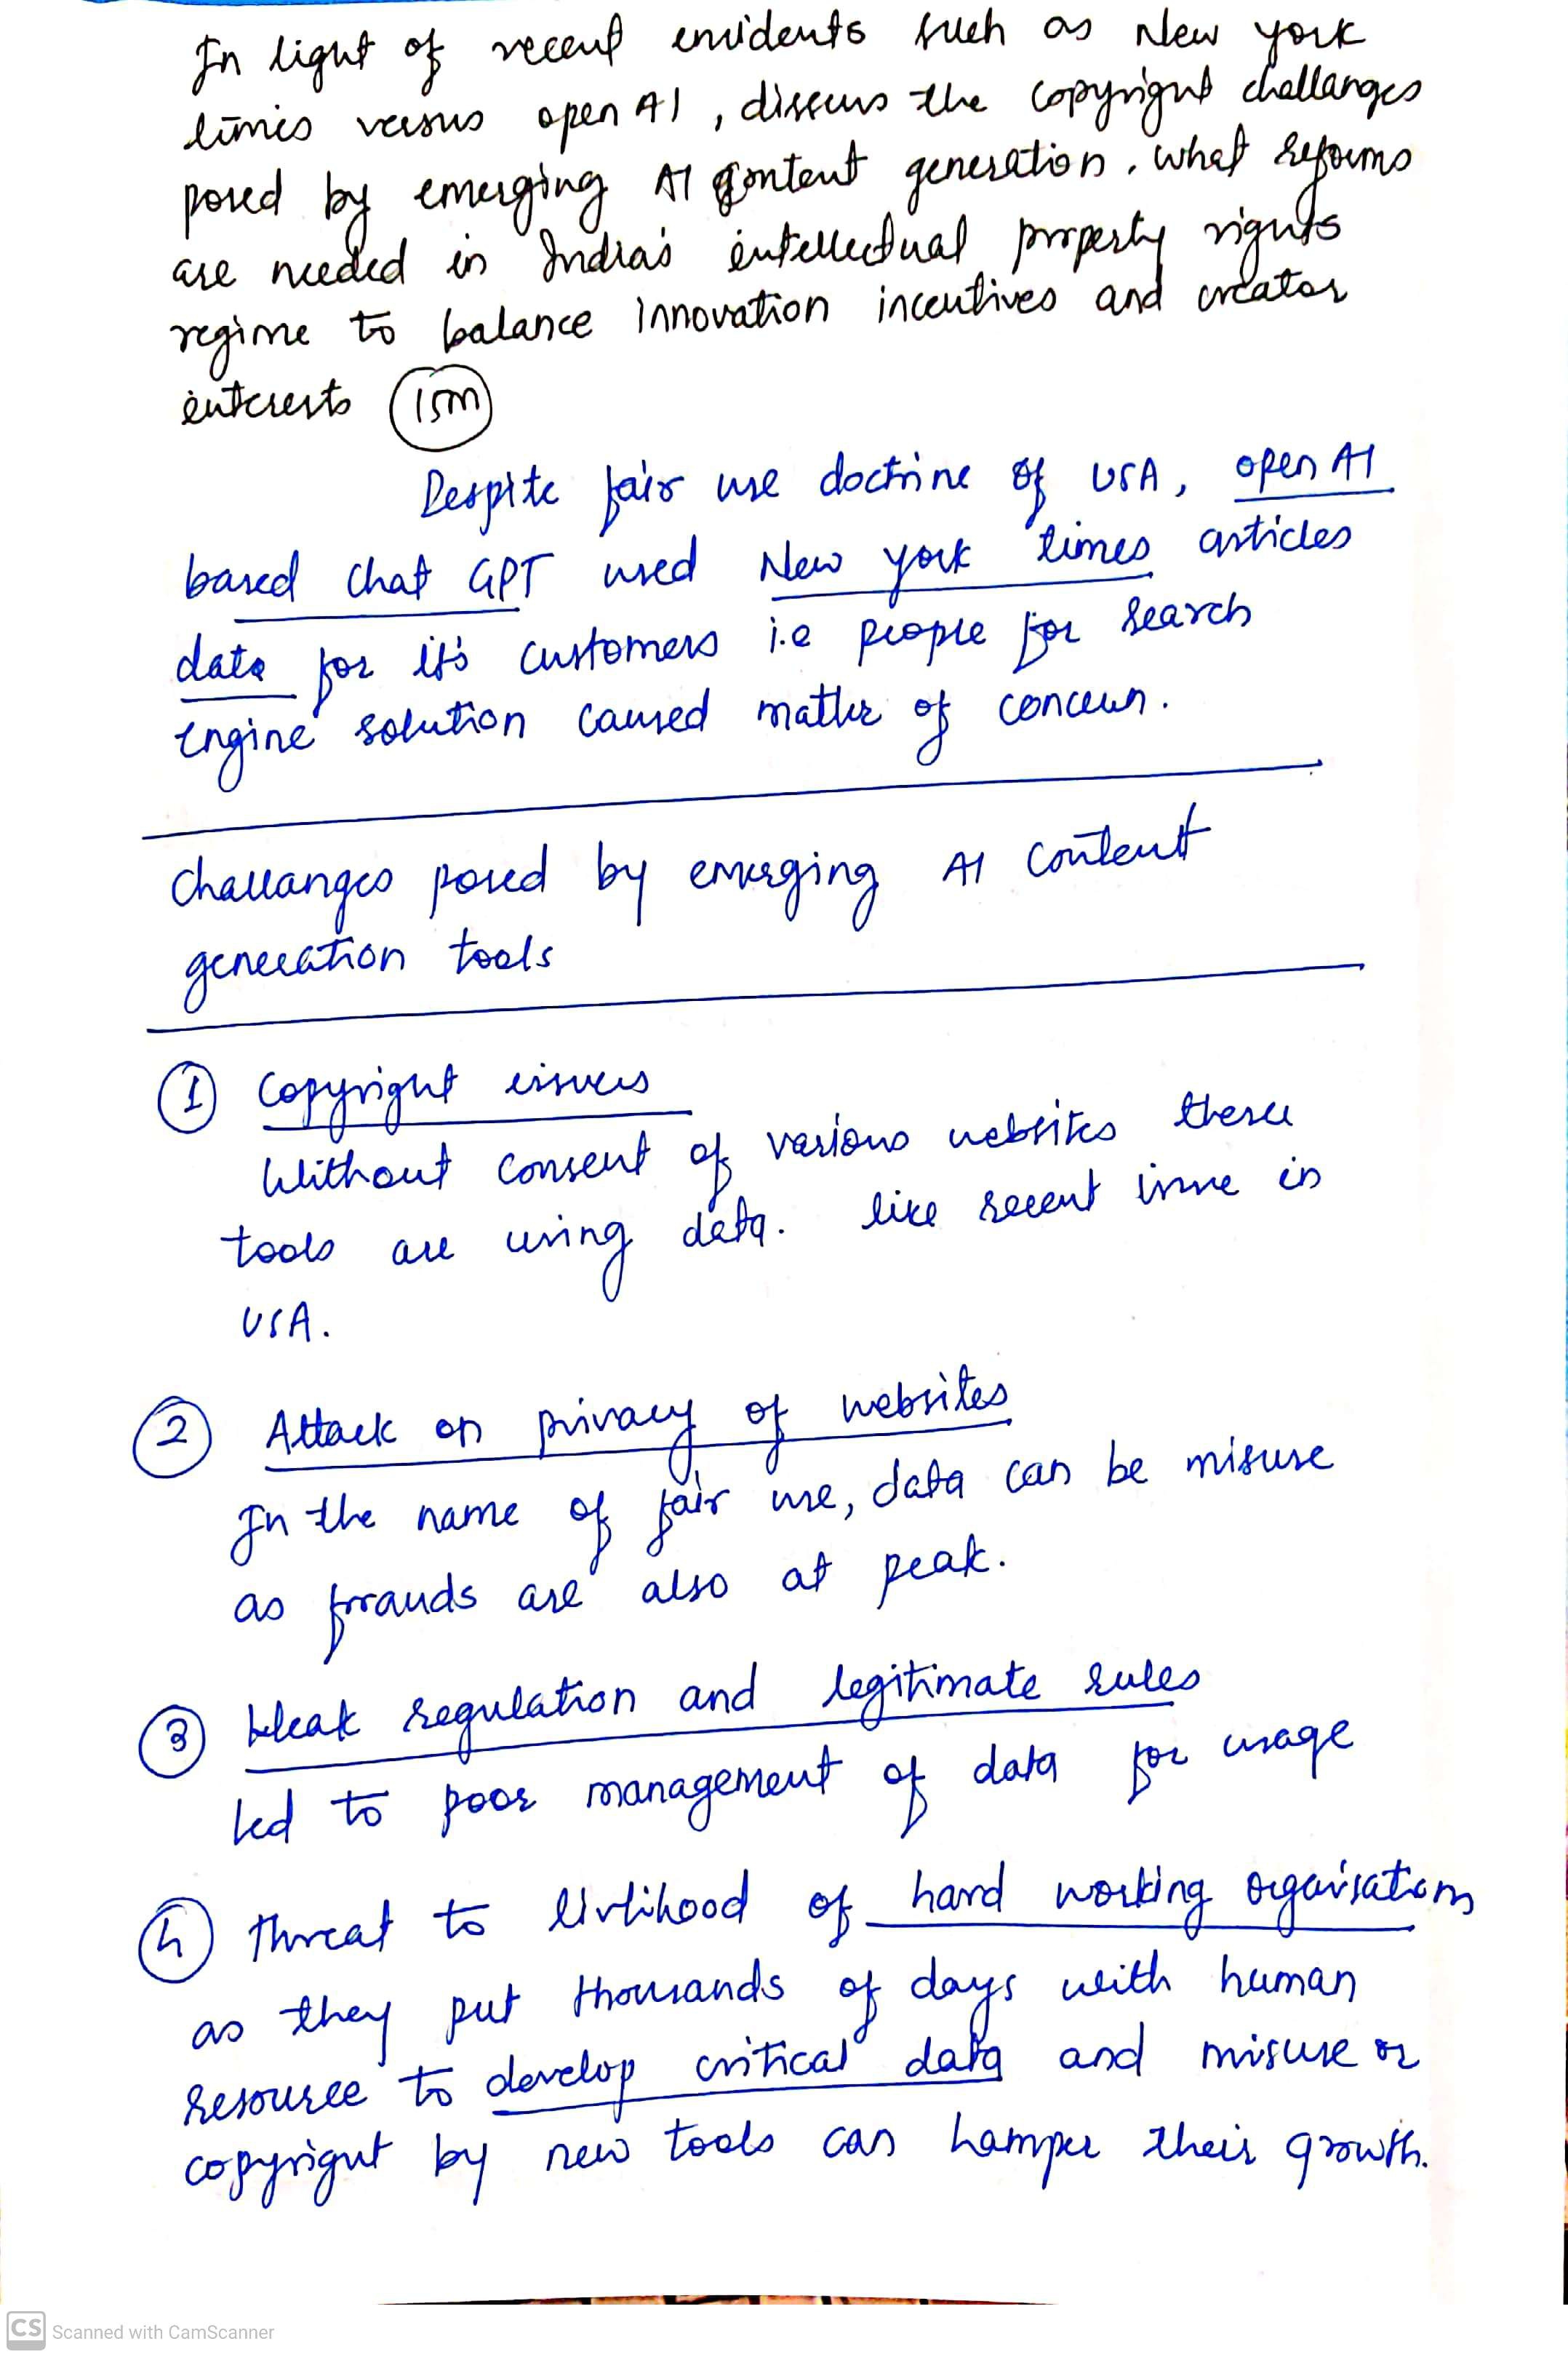 In light of recent incidents such as New york
times versus open AI, discuss the copyright challanges
posed by emerging AI content generation. what reforms
are needed in India's intellectual property rights
regime to balance innovation incentives and creator
interests 15m
Despite fair use doctrine of USA, open AI
based chat GPT used New york times articles
data for it's customers i.e people for search
engine solution caused matter of concern.
challanges posed by emerging AI content
generation tools
1 Copyright issues
Without consent of various websites these
tools are using data. like recent issue in
USA.
2 Attack on privacy of websites
In the name of fair use, data can be misuse
as frauds are also at peak.
3 Weak regulation and legitimate rules
led to poor management of data for usage
4 Threat to livlihood of hard working organisations
as they put thousands of days with human
resource to develop critical data and misuse or
copyright by new tools can hamper their growth.
CS Scanned with CamScanner